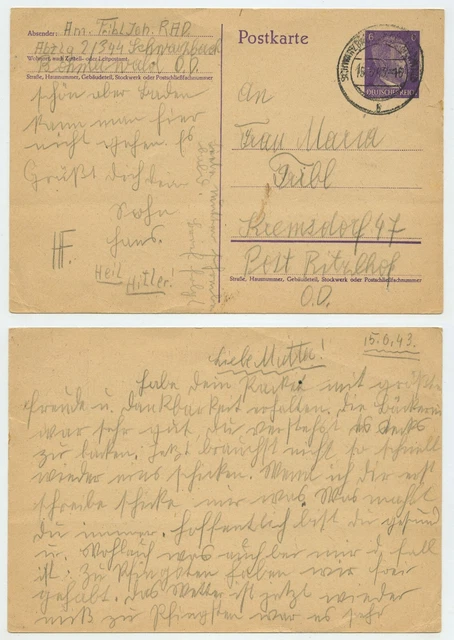 Absender: Am. Tribl Joh. RAD.
Abtlg 2/344 Schwarzbach
Böhmerwald O.D.
Wohnort, auch Zustell- oder Leitpostamt
Straße, Hausnummer, Gebäudeteil, Stockwerk oder Postschließfachnummer
schön aber Baden
kann man hier
nicht gehen. Es
Grüßt dich dein
Sohn
Hans.
Heil
Hitler!
Postkarte
6 6
DEUTSCHES REICH
An
Frau Maria
Tribl
Kremsdorf 47
Post Ritzlhof
Straße, Hausnummer, Gebäudeteil, Stockwerk oder Postschließfachnummer
O.D.
15.6.43.
Liebe Mutter!
Habe dein Packet mit größter
Freude u. Dankbarkeit erhalten. Die Bäckerei
war sehr gut. Du verstehst es stets
zu backen. Jetzt brauchst nicht so schnell
wieder etwas schicken. Wenn ich dir erst
schreibe schicke mir was. Was machst
Du immer. Hoffentlich bist du gesund
u. Wohlauf was auch bei mir d. Fall
ist. Zu Pfingsten haben wir frei
gehabt. Das Wetter ist jetzt wieder
zu Pfingsten war es sehr